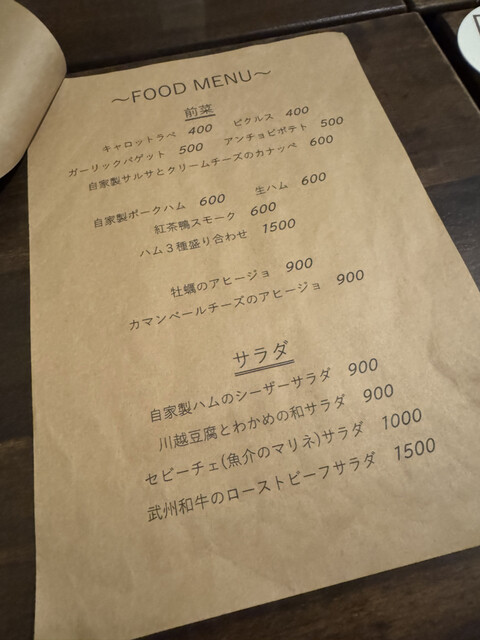 ～FOOD MENU～
前菜
キャロットラペ 400 ピクルス 400
ガーリックバゲット 500 アンチョビポテト 500
自家製サルサとクリームチーズのカナッペ 600
自家製ポークハム 600 生ハム 600
紅茶鴨スモーク 600
ハム3種盛り合わせ 1500
牡蠣のアヒージョ 900
カマンベールチーズのアヒージョ 900
サラダ
自家製ハムのシーザーサラダ 900
川越豆腐とわかめの和サラダ 900
セビーチェ(魚介のマリネ)サラダ 1000
武州和牛のローストビーフサラダ 1500